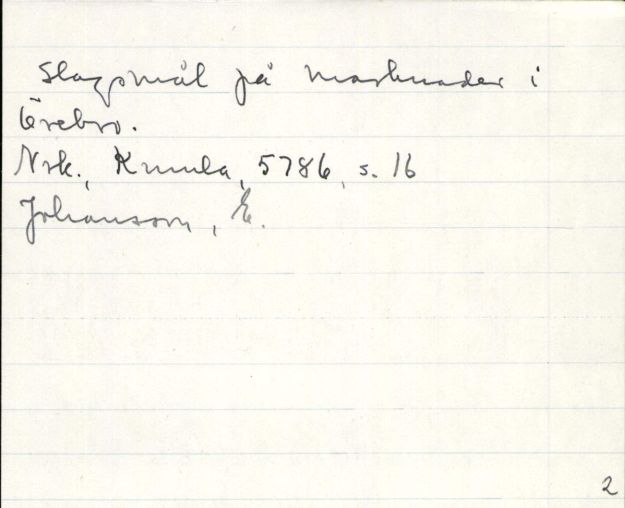 Slagsmål på marknader i
Örebro.
Nrk., Kumla, 5786, s. 16
Johansson, E.
2